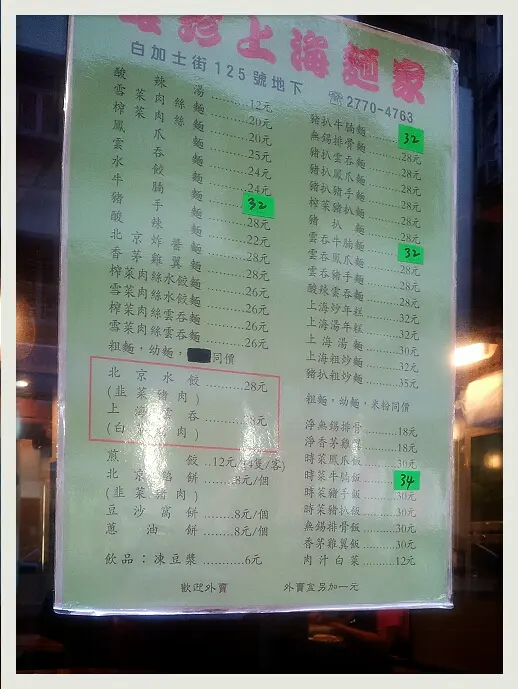 上海麵家
白加士街125號地下 ☎2770-4763
酸辣湯.........12元
雪菜肉絲麵.........20元
榨菜肉絲麵.........20元
鳳爪麵.........25元
雲吞麵.........24元
水餃麵.........24元
牛腩麵.........32
豬手麵.........28元
酸辣麵.........22元
北京炸醬麵.........28元
香茅雞翼麵.........28元
榨菜肉絲水餃麵.........26元
雪菜肉絲水餃麵.........26元
榨菜肉絲雲吞麵.........26元
雪菜肉絲雲吞麵.........26元
粗麵，幼麵，同價
北京水餃.........28元
(韭菜豬肉)
上海雲吞.........元
(白菜豬肉)
煎餃...12元/(4隻/客)
北京餡餅.........8元/個
(韭菜豬肉)
豆沙窩餅.........8元/個
蔥油餅.........8元/個
飲品：凍豆漿.........6元
豬扒牛腩麵.........32
無錫排骨麵.........28元
豬扒雲吞麵.........28元
豬扒鳳爪麵.........28元
豬扒豬手麵.........28元
榨菜豬扒麵.........28元
豬扒麵.........28元
雲吞牛腩麵.........32
雲吞鳳爪麵.........28元
雲吞豬手麵.........28元
酸辣雲吞麵.........28元
上海炒年糕.........32元
上海湯年糕.........32元
上海湯麵.........30元
上海粗炒麵.........32元
豬扒粗炒麵.........35元
粗麵，幼麵，米粉同價
淨無錫排骨.........18元
淨香茅雞翼.........18元
時菜鳳爪飯.........30元
時菜牛腩飯.........34
時菜豬手飯.........30元
時菜豬扒飯.........30元
無錫排骨飯.........30元
香茅雞翼飯.........30元
肉汁白菜.........12元
歡迎外賣 外賣盒另加一元